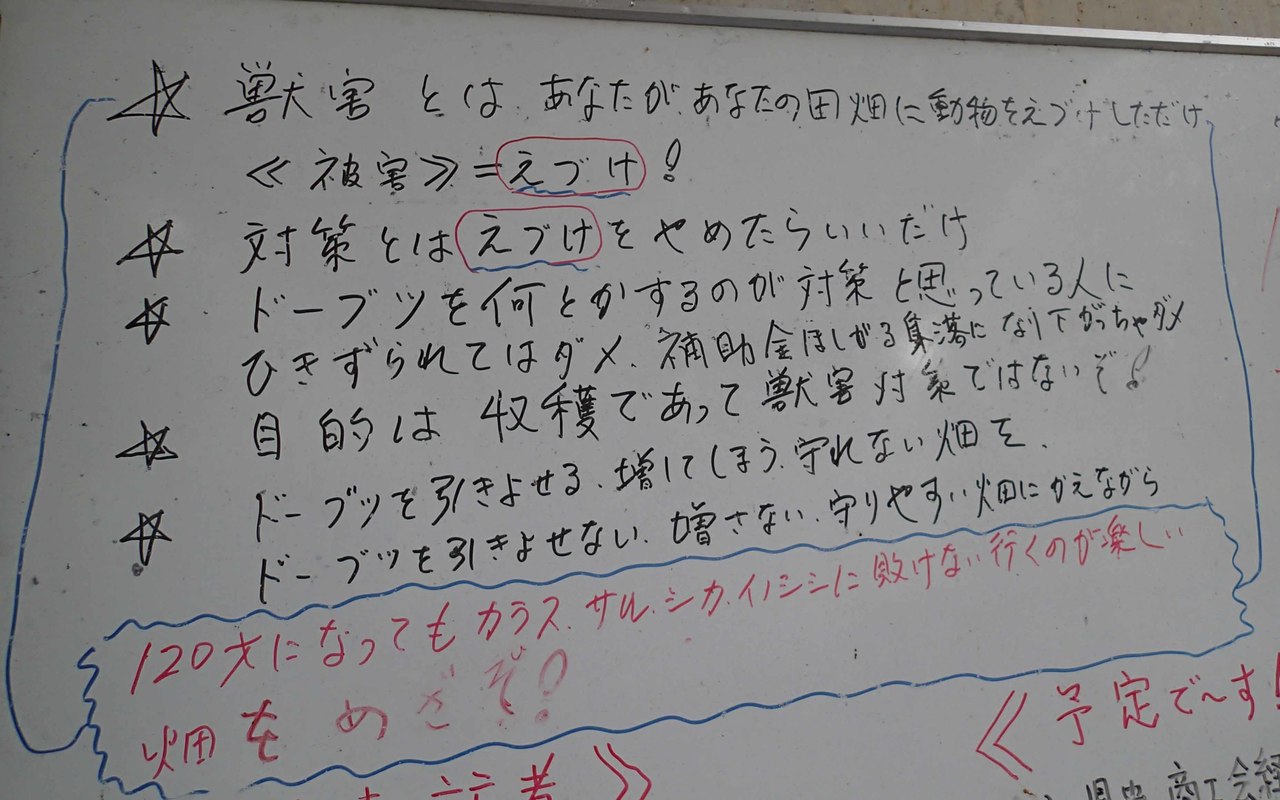 ☆ 獣害とは、あなたが、あなたの田畑に動物をえづけしただけ
≪被害≫=えづけ!
☆ 対策とはえづけをやめたらいいだけ
☆ ドーブツを何とかするのが対策と思っている人に
ひきずられてはダメ、補助金ほしがる集落になり下がっちゃダメ
☆ 目的は収穫であって獣害対策ではないぞ!
☆ ドーブツを引きよせる、増してしまう、守れない畑を、
ドーブツを引きよせない、増さない、守りやすい畑にかえながら
120才になってもカラス、サル、シカ、イノシシに敗けない行くのが楽しい
畑をめざぞ!
≪予定で~す!
者≫
県央商工会経